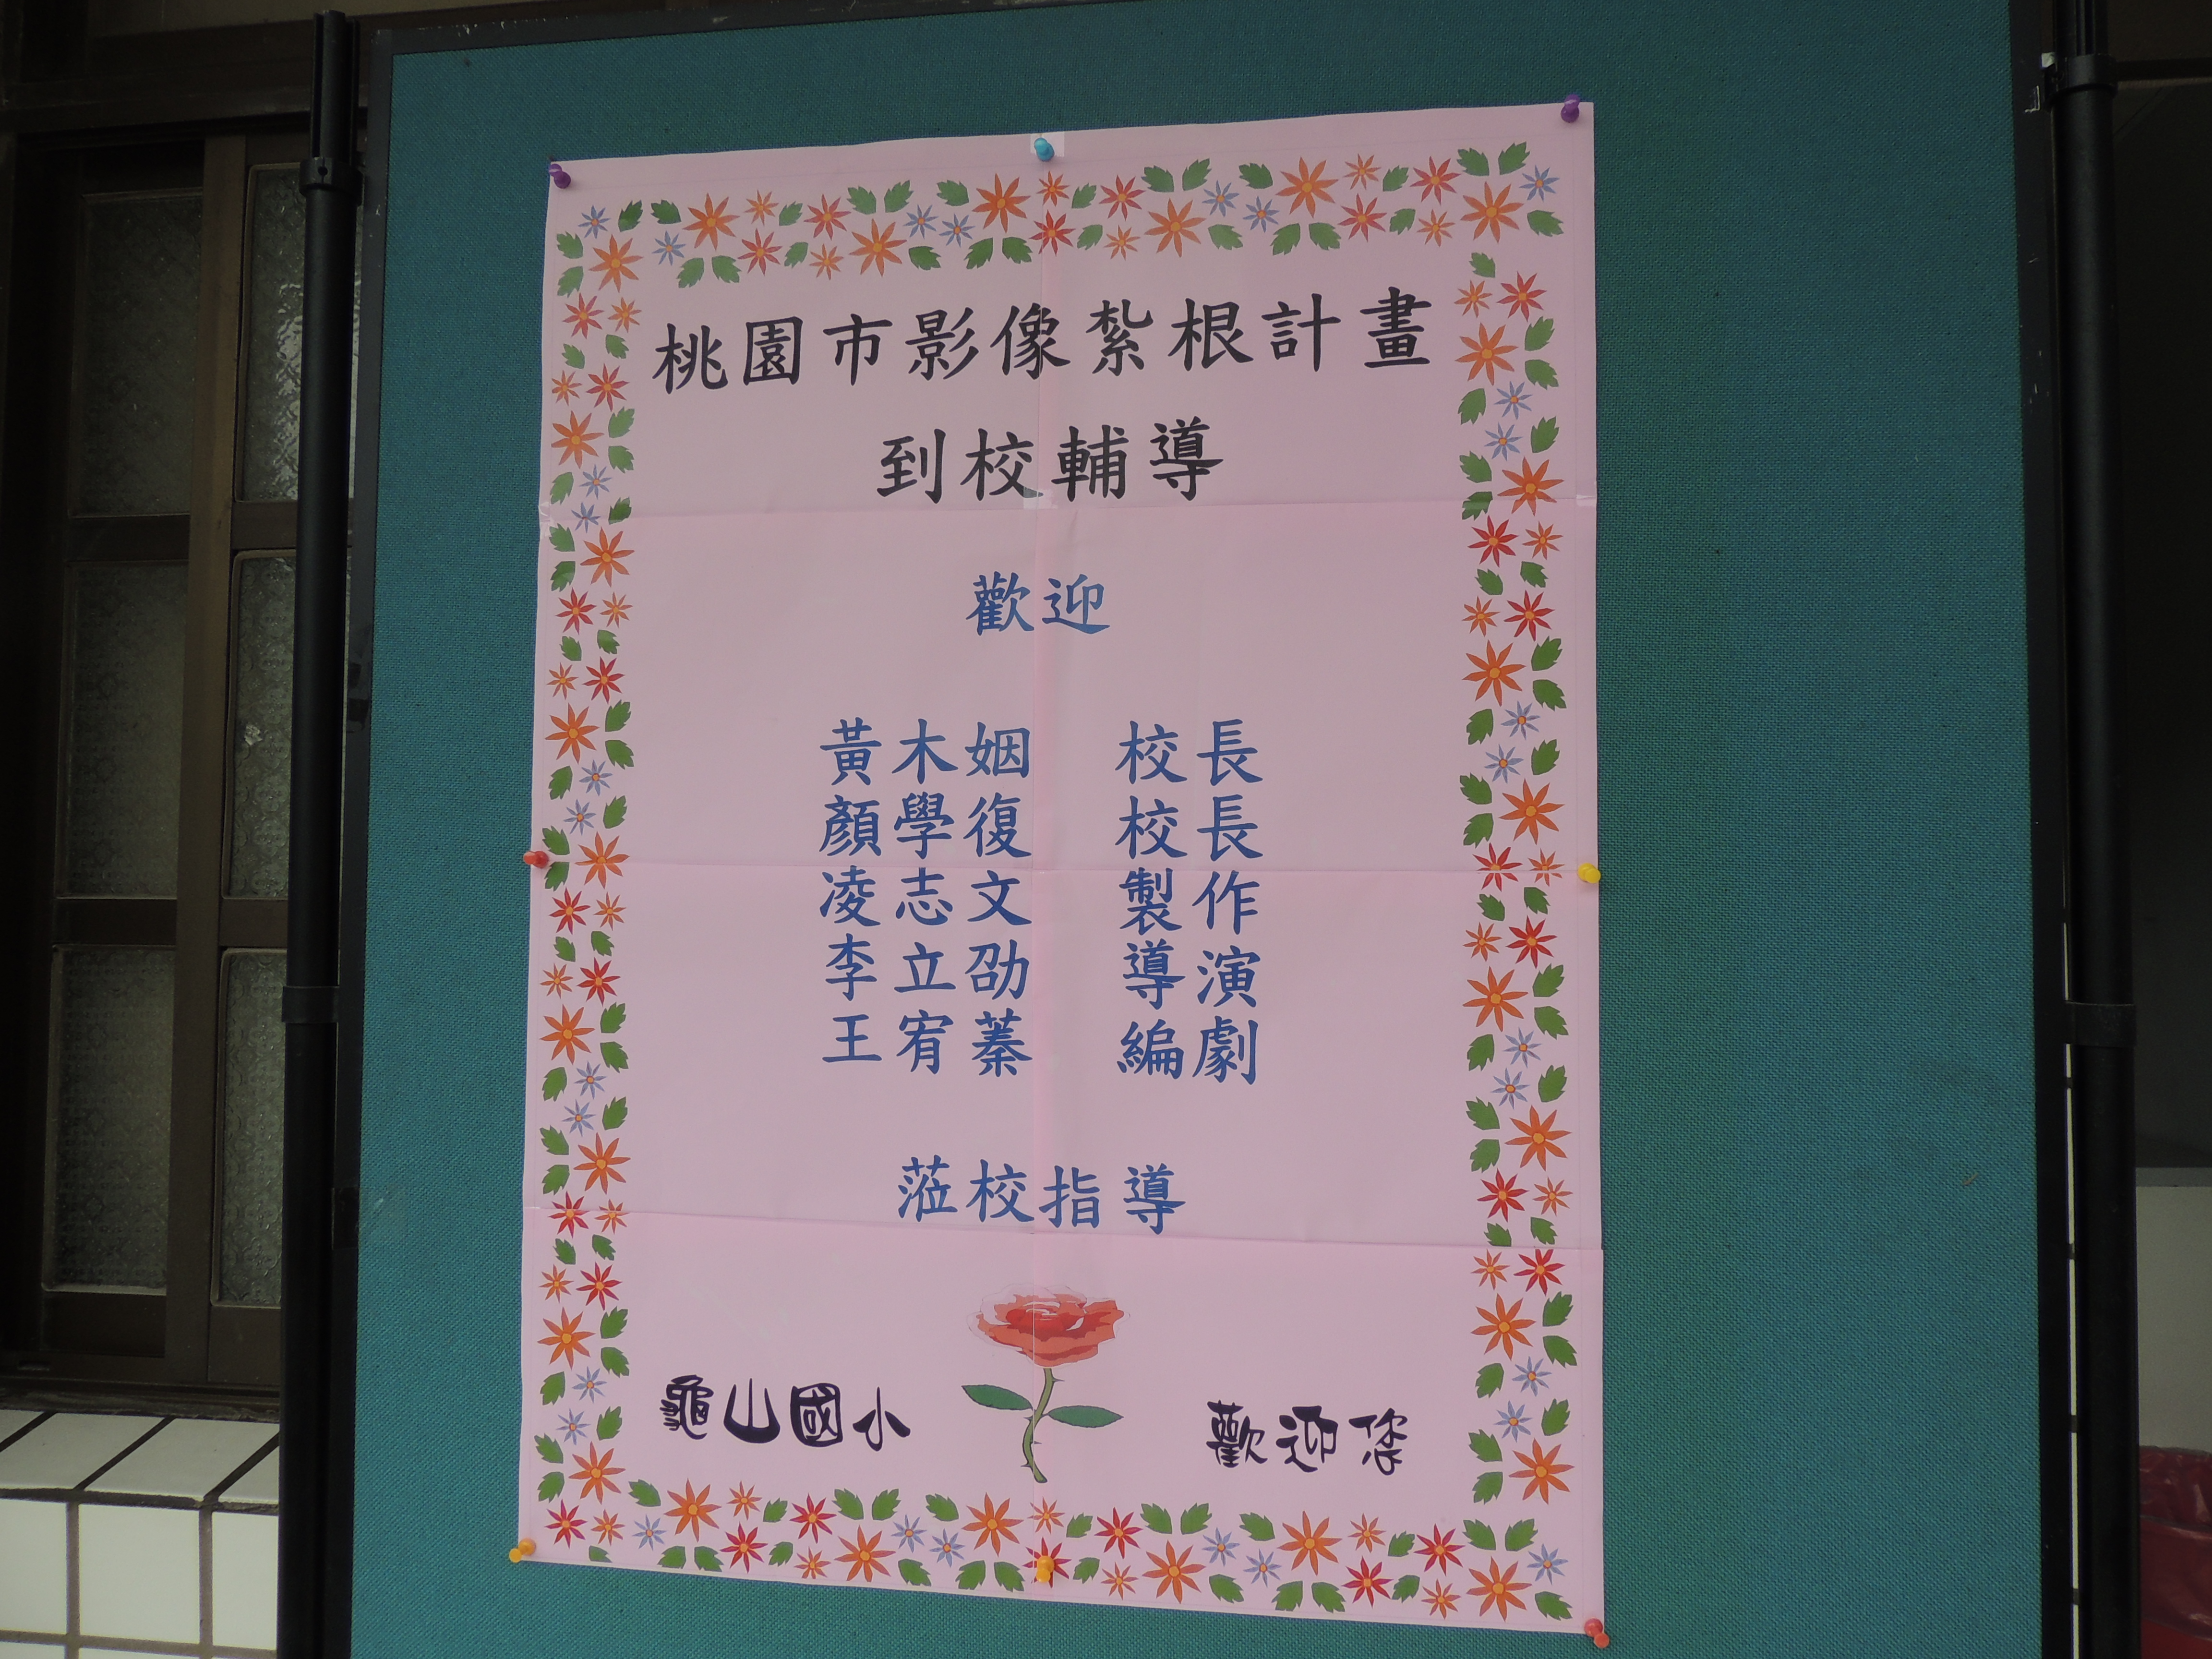 桃園市影像紮根計畫
到校輔導
歡迎
黃木姻 校長
顏學復 校長
凌志文 製作
李立劭 導演
王宥蓁 編劇
蒞校指導
龜山國小 歡迎您